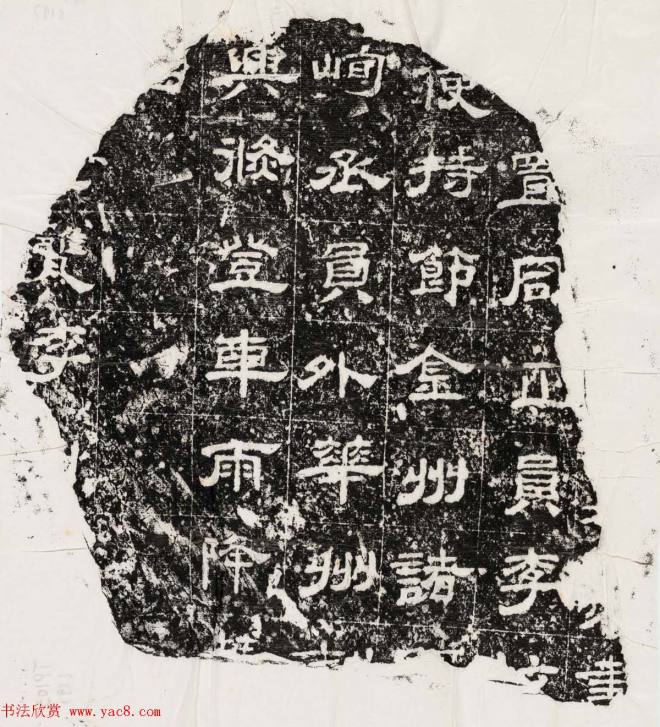 事
置同正員李
使持節金州諸
峋丞員外華州
興發登車雨降
李
书法欣赏 www.yac8.com